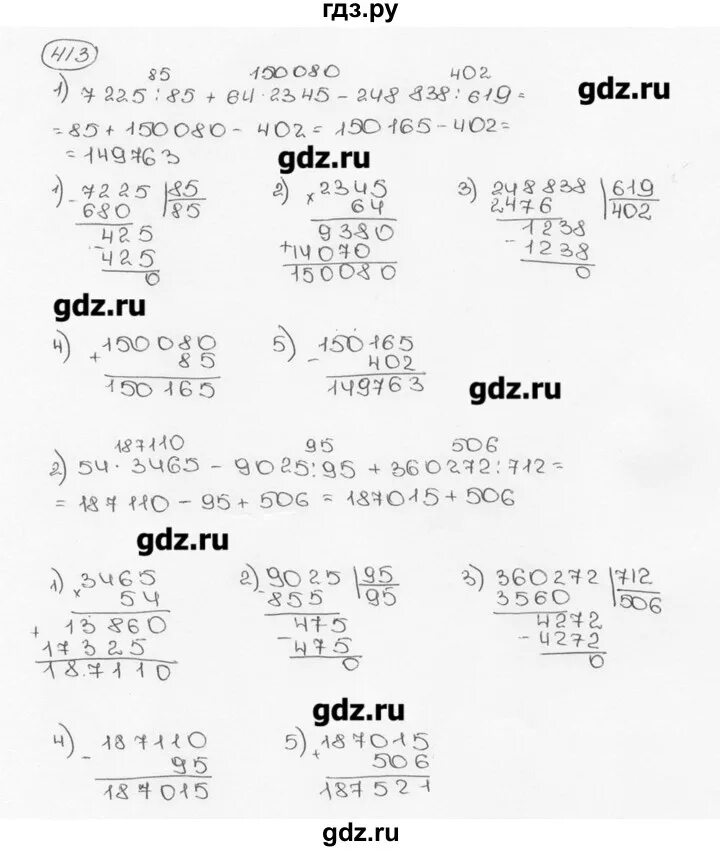 гдз.ру
413
85 150080 402
1) 7225:85 + 64·2345 - 248 838:619=
gdz.ru
=85+150080- 402= 150165-402=
=149763
gdz.ru
1) - 7225 |85
680 85
425
- 425
0
2) × 2345
64
9380
+14070
150080
3) 248838 |619
2476 402
1238
- 1238
0
gdz.ru
4) + 150080
85
150165
5) - 150165
402
149763
gdz.ru
187110 95 506
2) 54·3465 - 9025:95 + 360272:712=
= 187110-95+506 = 187015+506
gdz.ru
1) × 3465
54
+ 13860
17325
18.7110
2) - 9025 |95
855 95
475
- 475
0
3) 360272 |712
3560 506
4272
- 4272
0
gdz.ru
4) - 187110
95
187015
5) + 187015
506
187521
gdz.ru